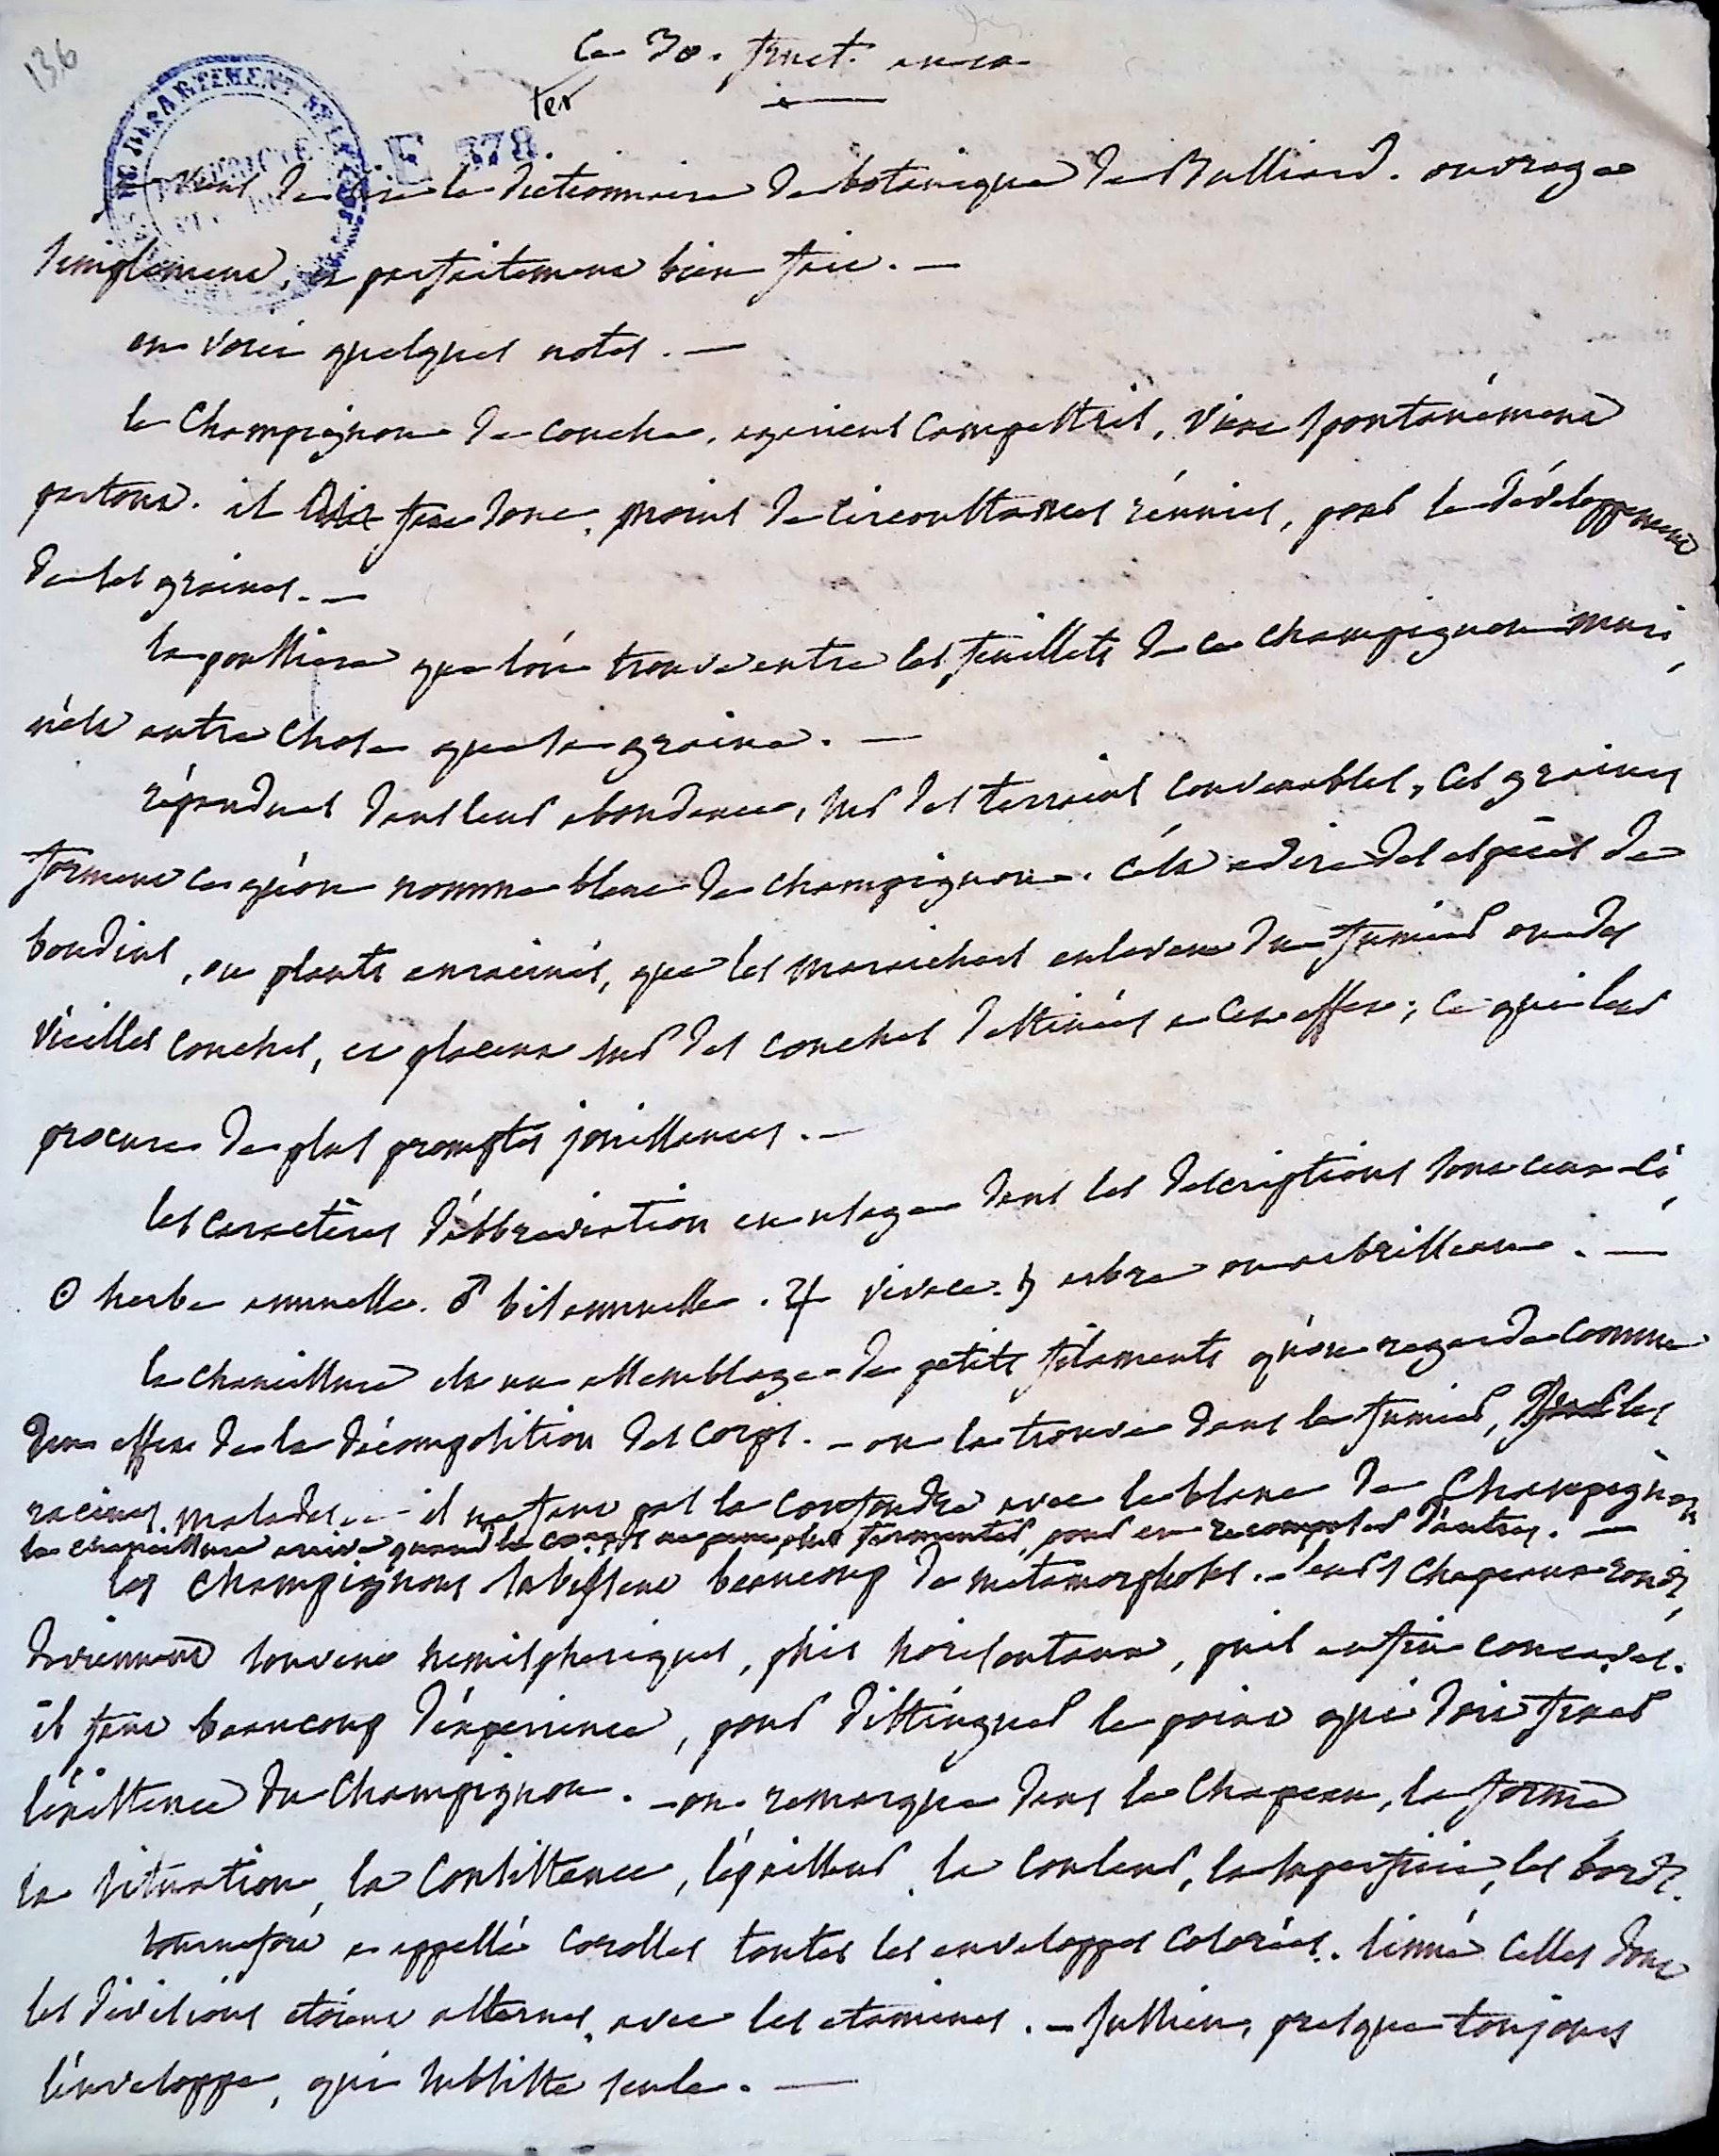 136
Ce 30. fruct. an 10
ter
E 378
je viens de lire le dictionnaire de botanique de Bulliard. ouvrage
simplement, et parfaitement bien fait. —
en voici quelques notes. —
le Champignon de couche, agaricus campestris, vient spontanément
partout. il faut donc, moins de circonstances réunies, pour le développement
de ses graines. —
la poussiere que l'on trouve entre les feuillets de ce champignon muri,
n'est autre chose que sa graine. —
répandues dans leur abondance, sur des terrains convenables, ces graines
forment ce qu'on nomme blanc de champignon. c'est a dire des espèces de
boudins, ou plants enracinés, que les maraichers enlevent du fumier ou des
vieilles couches, et placent sur des couches destinées a cet effet; ce qui leur
procure de plus promptes jouissances. —
les caractères d'abbreviation en usage dans les descriptions sont ceux-ci,
☉ herbe annuelle. ♂ bisannuelle. ♃ vivace. ♄ arbre ou arbrisseau. —
la chancissure est un assemblage de petits filaments qu'on regarde comme
un effet de la décomposition des corps. — on la trouve dans le fumier, les
racines malades .. — il ne faut pas la confondre avec le blanc de Champignon
la chancissure arrive quand le corps ne peut plus fermenter, pour en recomposer d'autres. —
les champignons subissent beaucoup de métamorphoses. — leurs chapeaux ronds,
deviennent souvent hemispheriques, puis horisontaux, puis enfin concaves.
il faut beaucoup d'experience, pour distinguer le point qui doit fixer
l'existence du Champignon. — on remarque dans le Chapeau, la forme
la situation, la consistence, l'épaisseur, la couleur, la superficie, les bords.
tournefort a appellé corolles toutes les enveloppes colorées. linné celles dont
les divisions étoient alternes, avec les etamines. — Jussieu, presque toujours
l'enveloppe, qui subsiste seule. —